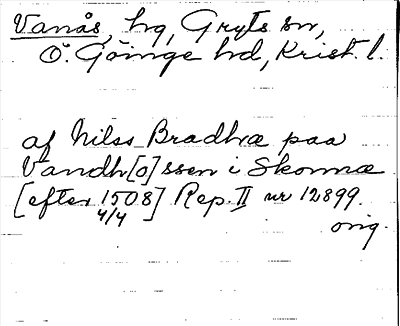 Vanås, hg, Gryts sn,
Ö. Göinge hd, Krist. l.
af Nilss Bradhæ paa
Vandh[o]ssen i Skonnæ
[efter 1508] Rep. II nr 12899.
4/4
orig.